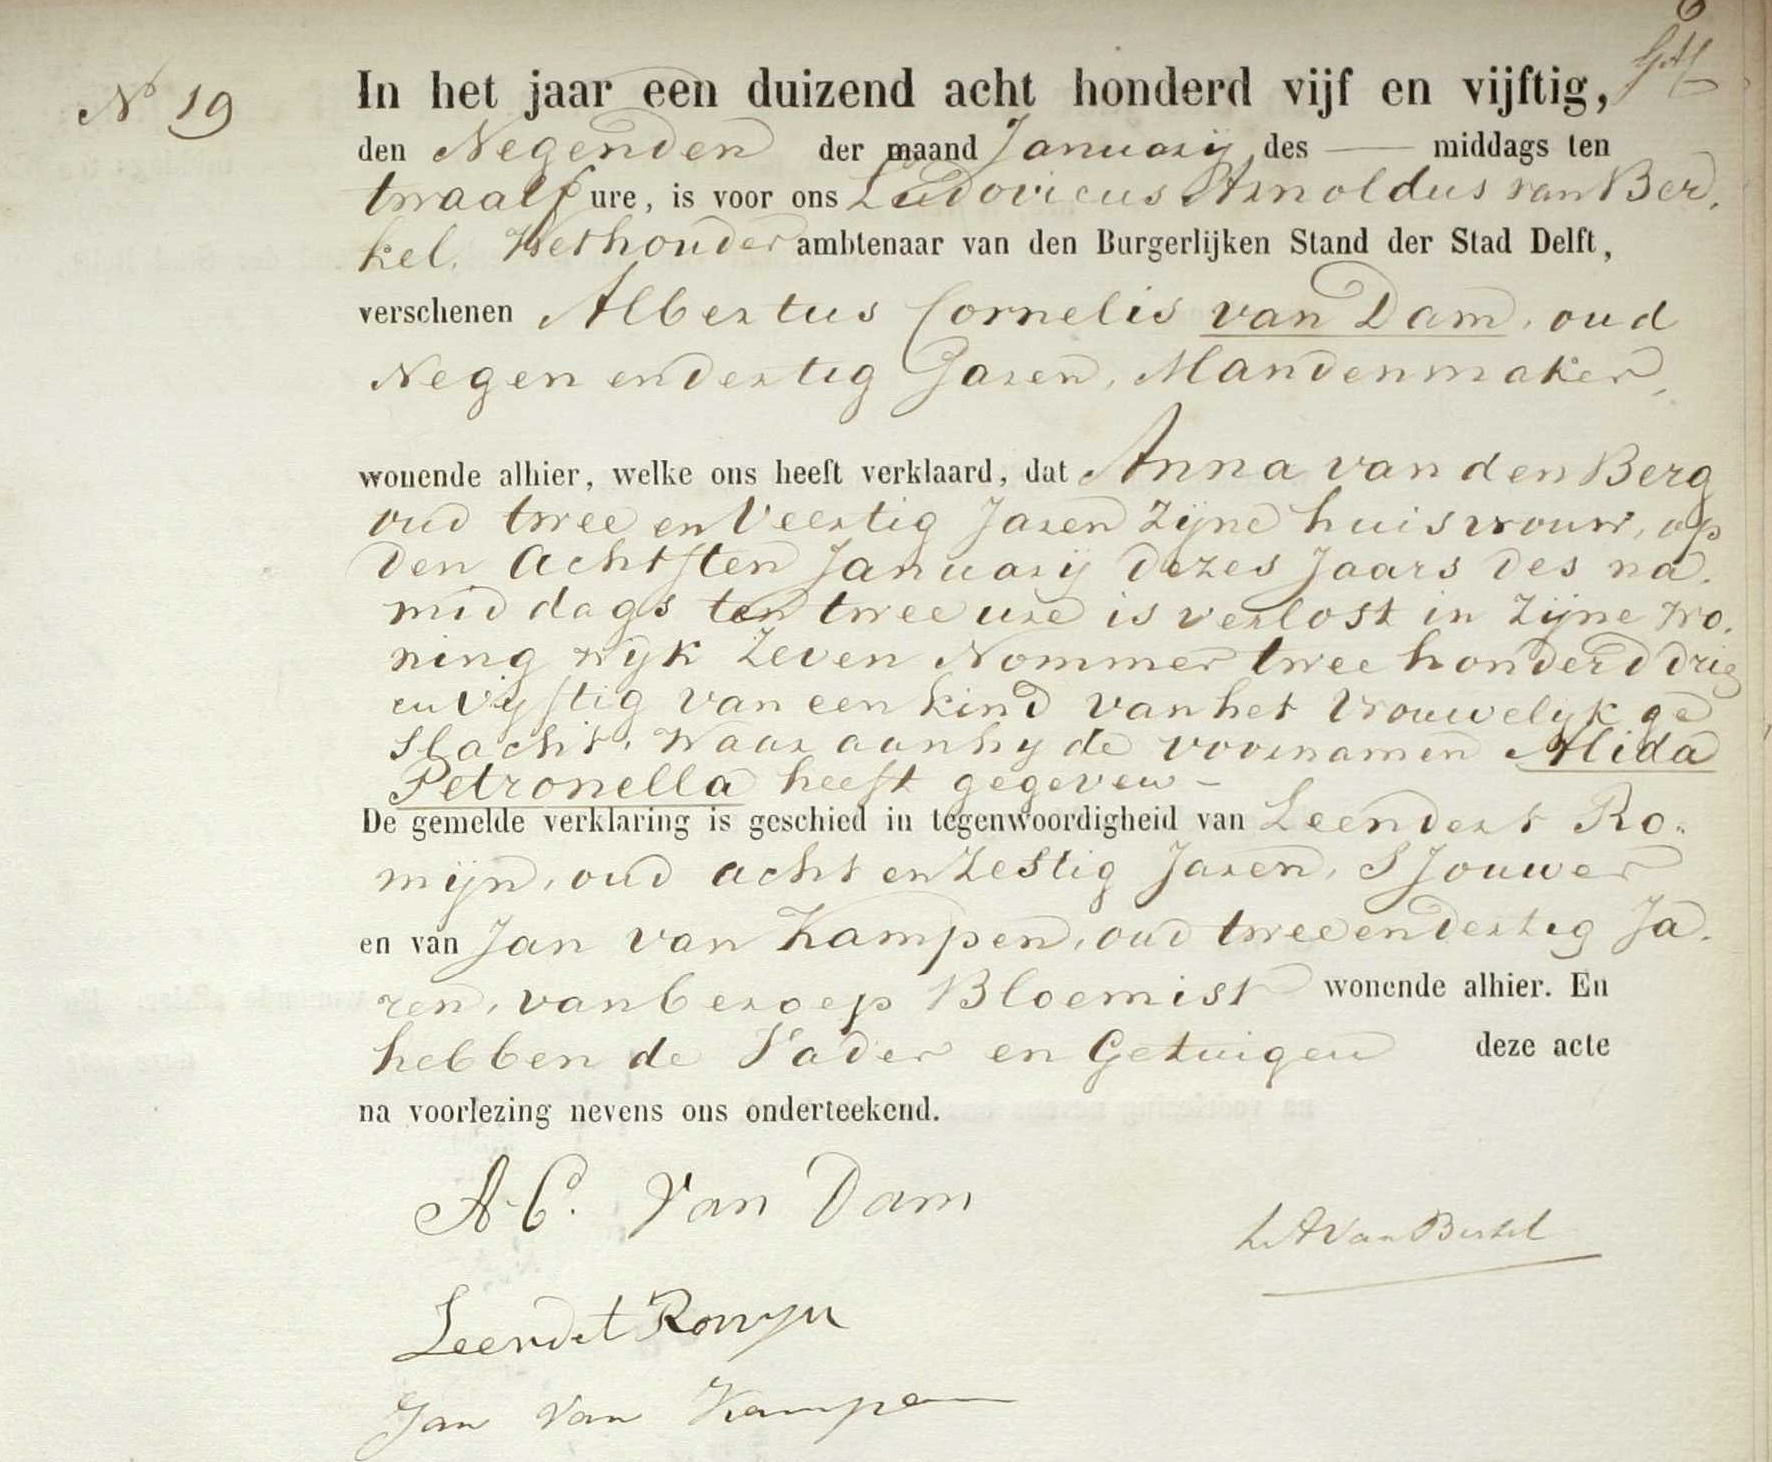 6
N° 19
In het jaar een duizend acht honderd vijf en vijftig,
den Negenden der maand Januarij des — middags ten
twaalf ure, is voor ons Ludovicus Arnoldus van Ber.
kel. Wethouder ambtenaar van den Burgerlijken Stand der Stad Delft,
verschenen Albertus Cornelis van Dam, oud
Negen en dertig Jaren, Mandenmaker,
wonende alhier, welke ons heeft verklaard, dat Anna van den Berg
oud twee en Veertig Jaren zijne huisvrouw, op
den Achtsten Januarij dezes Jaars des na.
middags ten twee ure is verlost in zijne wo.
ning wijk Zeven Nommer twee honderd drie
en vijftig van een kind van het Vrouwelijk ge
slacht, waar aan hij de voornamen Alida
Petronella heeft gegeven –
De gemelde verklaring is geschied in tegenwoordigheid van Leendert Ro„
mijn, oud acht en Zestig Jaren, Sjouwer
en van Jan van Kampen, oud twee en dertig Ja.
ren, van beroep Bloemist wonende alhier. En
hebben de Vader en Getuigen deze acte
na voorlezing nevens ons onderteekend.
A. C. Van Dam
L A Van Berkel
Leendet Romyn
Jan Van Kampen